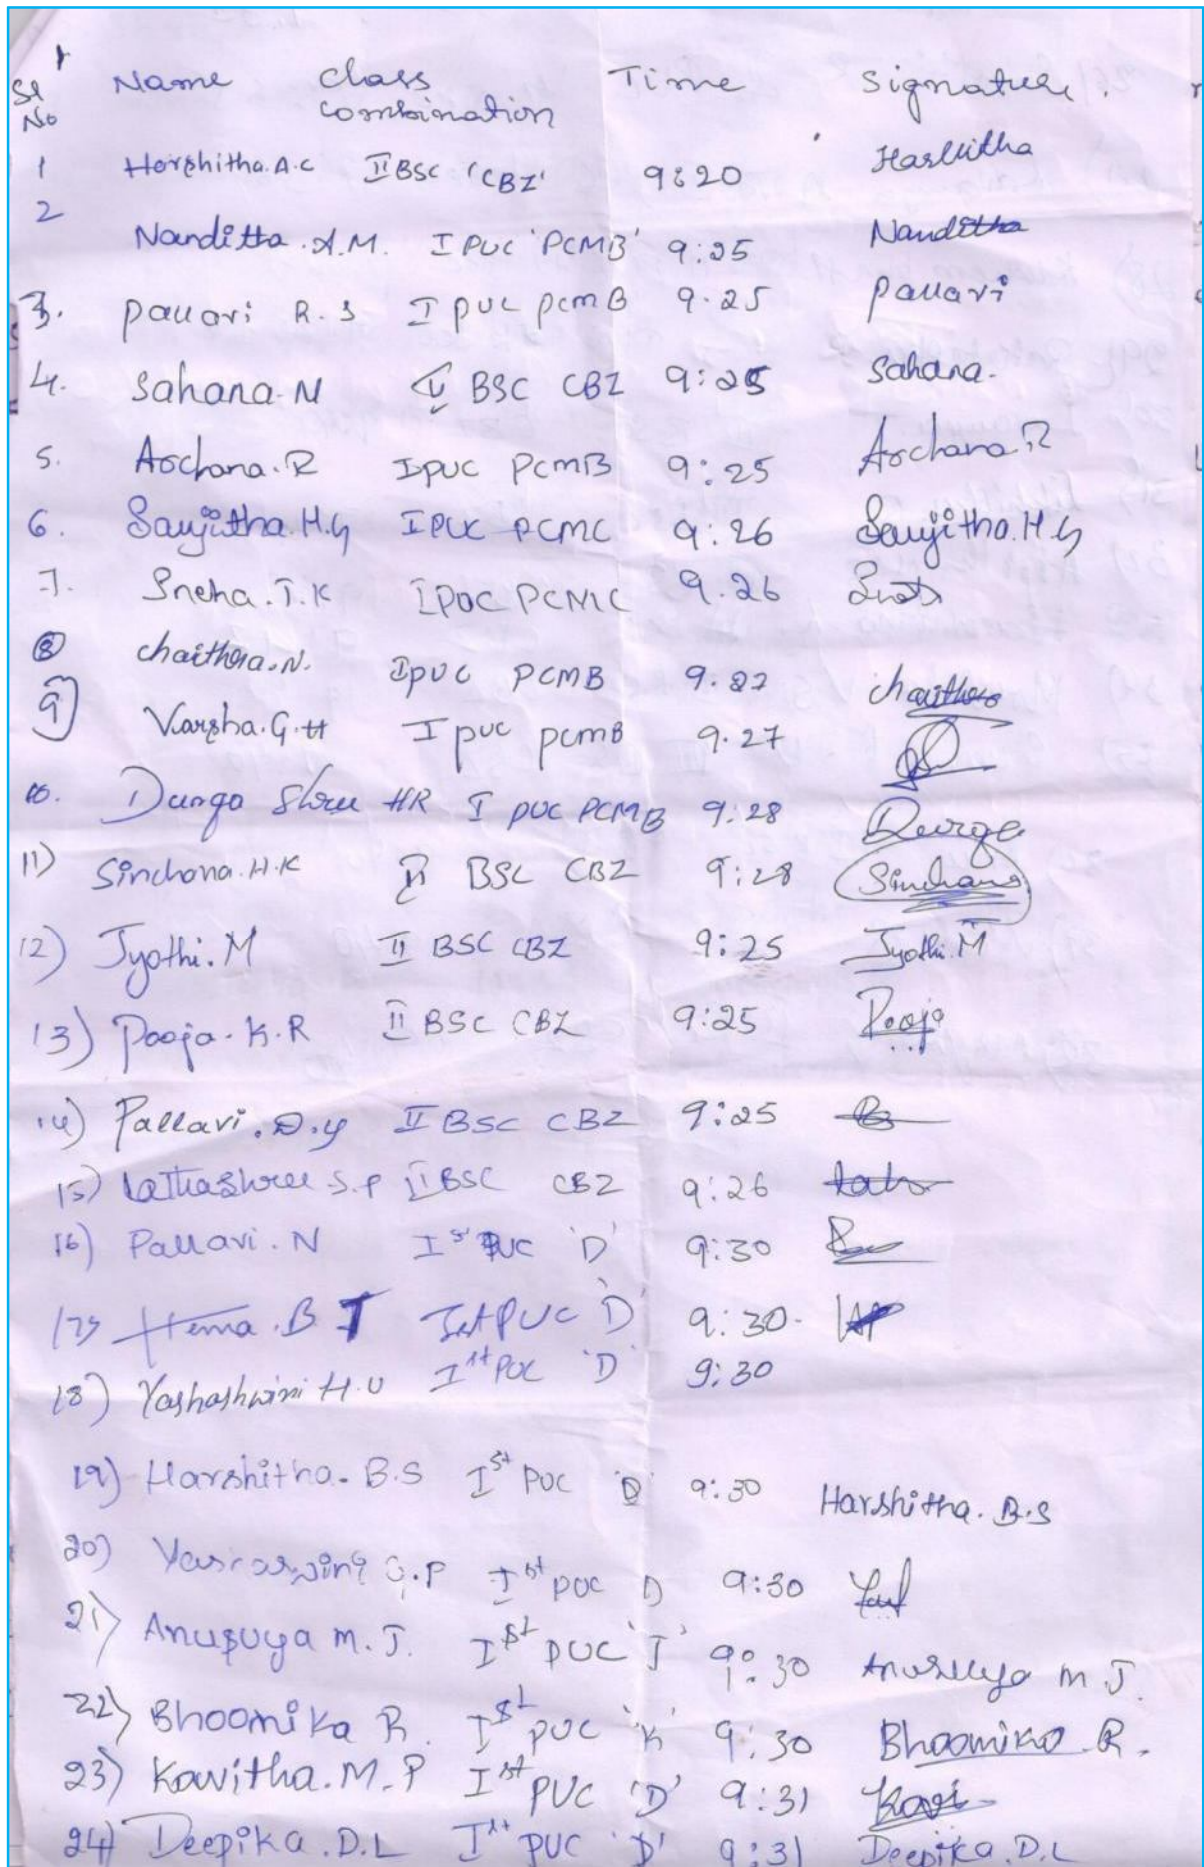 Sl No Name Class combination Time Signature.
1 Harshitha.A.C II BSC 'CBZ' 9:20 Harshitha
2 Nanditta.A.M. I PUC 'PCMB' 9:25 Nanditha
3. Pallavi R.S I PUC PCMB 9.25 Pallavi
4. Sahana.N BSC CBZ 9:25 Sahana.
5. Archana.R I PUC PCMB 9:25 Archana R
6. Sanjitha.H.G I PUC PCMC 9:26 Sanjitha.H.G
7. Sneha.T.K I PUC PCMC 9.26
8 Chaithra.N. I PUC PCMB 9.27 Chaithra
9) Varsha.G.H I PUC PCMB 9.27
10. Durga Shree HR I PUC PCMB 9:28 Durga
11) Sinchana.H.K II BSC CBZ 9:28 Sinchana
12) Jyothi.M II BSC CBZ 9:25 Jyothi.M
13) Pooja.K.R II BSC CBZ 9:25 Pooja
14) Pallavi.D.Y II BSC CBZ 9:25
15) Lathashree S.P II BSC CBZ 9:26 Latha
16) Pallavi.N I st PUC 'D' 9:30
17) Hema.B T Ist PUC 'D' 9:30.
18) Yashashwini H.U I st PUC 'D' 9:30
19) Harshitha.B.S I st PUC 'D' 9:30 Harshitha.B.S
20) G.P I st PUC D 9:30
21) Anusuya M.J. I st PUC 'J' 9:30 Anusuya M J.
22) Bhoomika R. I st PUC 'K' 9:30 Bhoomika R.
23) Kavitha.M.P I st PUC 'D' 9:31 Kavi
24) Deepika.D.L I st PUC 'D' 9:31 Deepika.D.L